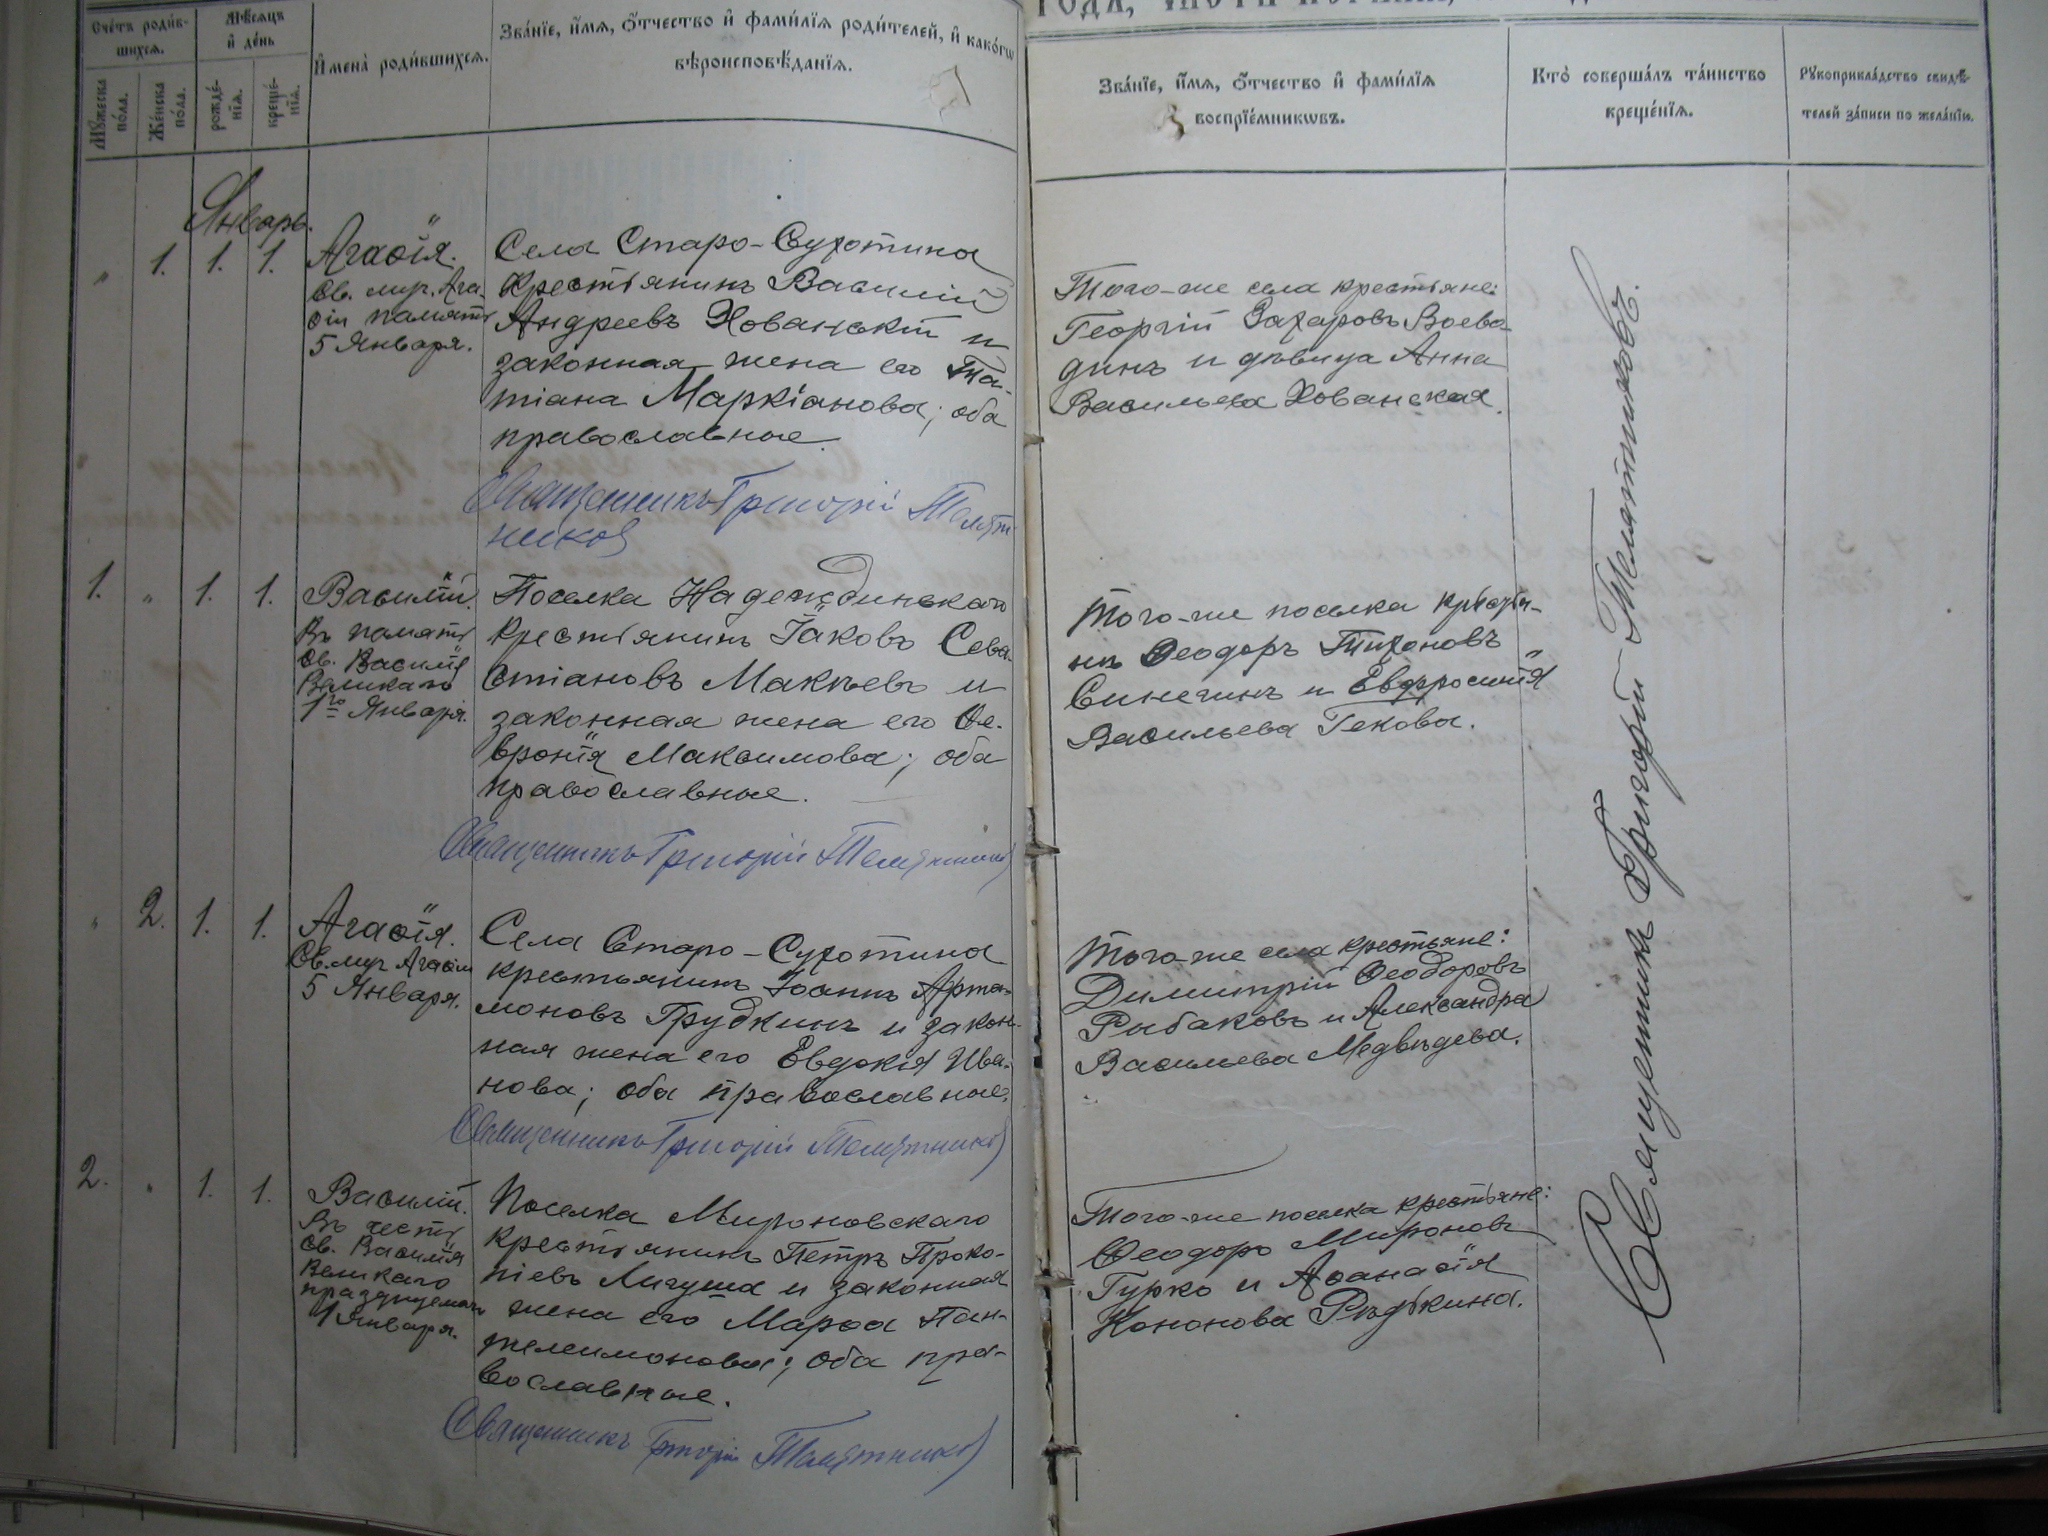 Сче́тъ роди́в-
шихся.
Мѣ́сяцъ
и҆ де́нь
Мꙋ́жеска
по́ла.
Же́нска
по́ла.
рожде́-
нїѧ.
креще́-
нїѧ.
И҆мена̀ роди́вшихсѧ.
Зва́нїе, и҆́мѧ, ѻ҆́тчество и҆ фами́лїѧ роди́телей, и҆ како́гѡ
вѣроисповѣ́данїѧ.
Январь.
„ 1. 1. 1.
Агаѳія.
Св. муч. Ага-
ѳіи память
5 Января.
Села Старо-Сухотина
крестьянинъ Василій
Андреевъ Хованскій и
законная жена его Та-
тіана Маркіанова; оба
православные.
Священникъ Григорій Телят-
никовъ
1. „ 1. 1.
Василій.
Въ память
св. Василія
Великаго
1го Января.
Поселка Надеждинскаго
крестьянинъ Іаковъ Сева-
стіановъ Макѣевъ и
законная жена его Ѳе-
вронія Максимова; оба
православные.
Священникъ Григорій Телятниковъ
„ 2. 1. 1.
Агаѳія.
Св. муч Агаѳіи
5 Января.
Села Старо-Сухотина
крестьянинъ Іоаннъ Арта-
моновъ Грудкинъ и закон-
ная жена его Евдокія Ива-
нова; оба православные.
Священникъ Григорій Телятниковъ
2. „ 1. 1.
Василій.
Въ честь
св. Василія
Великаго
празднуемаго
1 Января.
Поселка Мироновскаго
крестьянинъ Петръ Проко-
піевъ Лигуша и законная
жена его Марѳа Пан-
телеимонова; оба пра-
вославные.
Священникъ Григорій Телятниковъ
Зва́нїе, и҆́мѧ, ѻ҆́тчество и҆ фами́лїѧ
воспрїе́мникѡвъ.
Кто̀ соверша́лъ та́инство
креще́нїѧ.
Рꙋкоприкла́дство свидѣ́-
телей за́писи по жела́нїю.
Того-же села крестьяне:
Георгій Захаровъ Воево-
динъ и дѣвица Анна
Васильева Хованская.
Того-же поселка крестья-
не Ѳеодоръ Тихоновъ
Синегинъ и Евфросинія
Васильева Гекова.
Того-же села крестьяне:
Димитрій Ѳеодоровъ
Рыбаковъ и Александра
Васильева Медвѣдева.
Того-же поселка крестьяне:
Ѳеодоръ Мироновъ
Гурко и Аѳанасія
Кононова Рѣдькина.
Священникъ Григорій Телятниковъ.